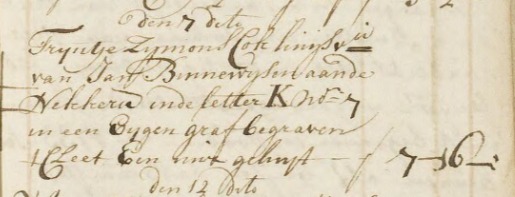 den 7 dito
Tryntje Zymons Coklingsvii
van Jan Binnewysen aande
Nekkerd inde letter K No 7
in een Eygen graf begraven
t Cleet Een uur geluyt — f 7–16–:
den 12 dito